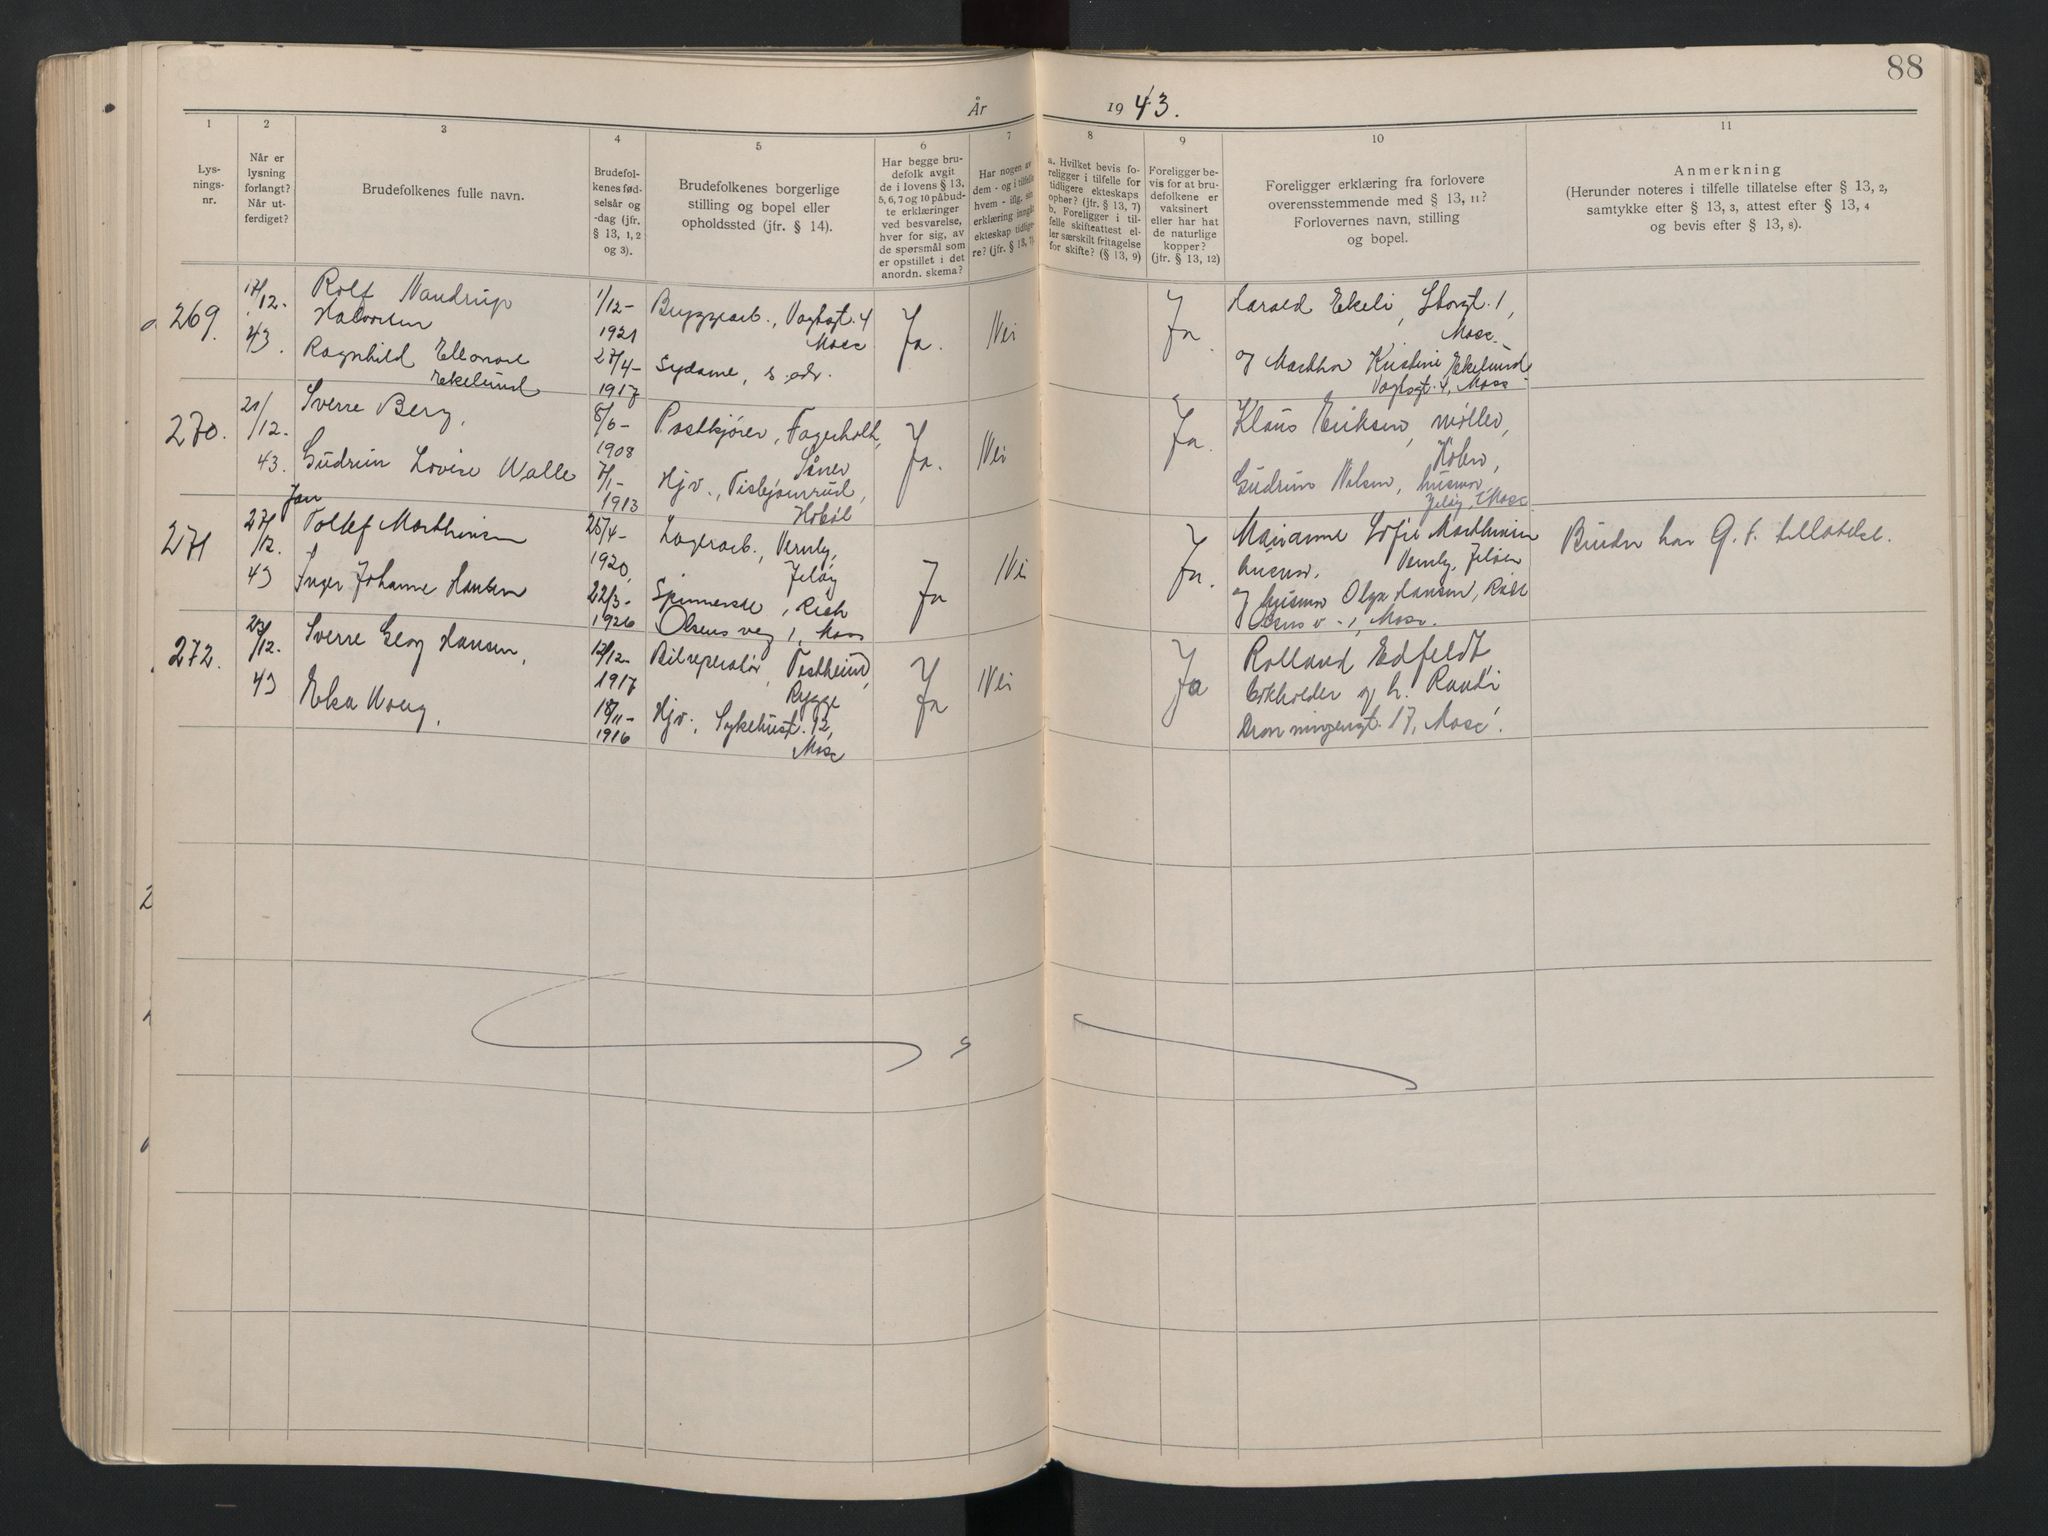 88
År 1943.
1
Lysningsnr.
2
Når er lysning forlangt? Når utferdiget?
3
Brudefolkenes fulle navn.
4
Brudefolkenes fødselsår og -dag (jfr. § 13, 1, 2 og 3).
5
Brudefolkenes borgerlige stilling og bopel eller opholdssted (jfr. § 14).
6
Har begge brudefolk avgit de i lovens § 13, 5, 6, 7 og 10 påbudte erklæringer ved besvarelse, hver for sig, av de spørsmål som er opstillet i det anordn. skema?
7
Har nogen av dem - og i tilfelle hvem - iflg. sin erklæring inngått ekteskap tidligere? (jfr. § 13, 7).
8
a. Hvilket bevis foreligger i tilfelle for tidligere ekteskaps ophør? (jfr. § 13, 7)
b. Foreligger i tilfelle skifteattest eller særskilt fritagelse for skifte? (§ 13, 9)
9
Foreligger bevis for at brudefolkene er vaksinert eller har hat de naturlige kopper? (jfr. § 13, 12)
10
Foreligger erklæring fra forlovere overensstemmende med § 13, 11? Forlovernes navn, stilling og bopel.
11
Anmerkning
(Herunder noteres i tilfelle tillatelse efter § 13, 2, samtykke efter § 13, 3, attest efter § 13, 4 og bevis efter § 13, 8).
269.
17/12-
43.
Rolf Nandrup
Halvorsen
Ragnhild Elleonore
Ekelund
1/12-
1921
27/4-
1917
Bryggearb., Vogtsgt. 4
Moss
Sydame, s. adr.
Ja.
Nei
Ja.
Harald Ekeli, Storgt. 1,
Moss.
og Martha Kristine Ekelund
Vogtsgt. 4, Moss
270.
21/12.
43.
Sverre Berg,
Gudrun Lovise Walle
8/6-
1908
7/1-
1913
Postkjører, Fagerholt,
Såner
Hjv.,
Hobøl
Ja.
Nei
Ja.
Klaus Eriksen, møller,
Gudrun Nilsen, husmor,
Jeløy, Moss
271
27/12.
43
Jan
Tollef Marthinsen
Inger Johanne Hansen
25/4-
1920,
22/3-
1926
Lagerarb., Vernly,
Jeløy
Spinnerske,
Olsens veg 1, Moss
Ja
Nei
Ja.
Marianne Sofie Marthinsen
husmor. Vernly, Jeløen
og husmor Olga Hansen,
Olsens v. 1, Moss.
Bruden har G. f. tillatelse.
272.
/12.
43
Sverre Georg Hansen,
Elsa Haug,
12/12-
1917
18/11-
1916
Bilreparatør, Festheim,
Rygge
Hjv., Sykehusgt. 12,
Moss
Ja
Nei
Ja
Rolland Edfeldt
bokholder og h. Randi
Dronningensgt. 17, Moss.